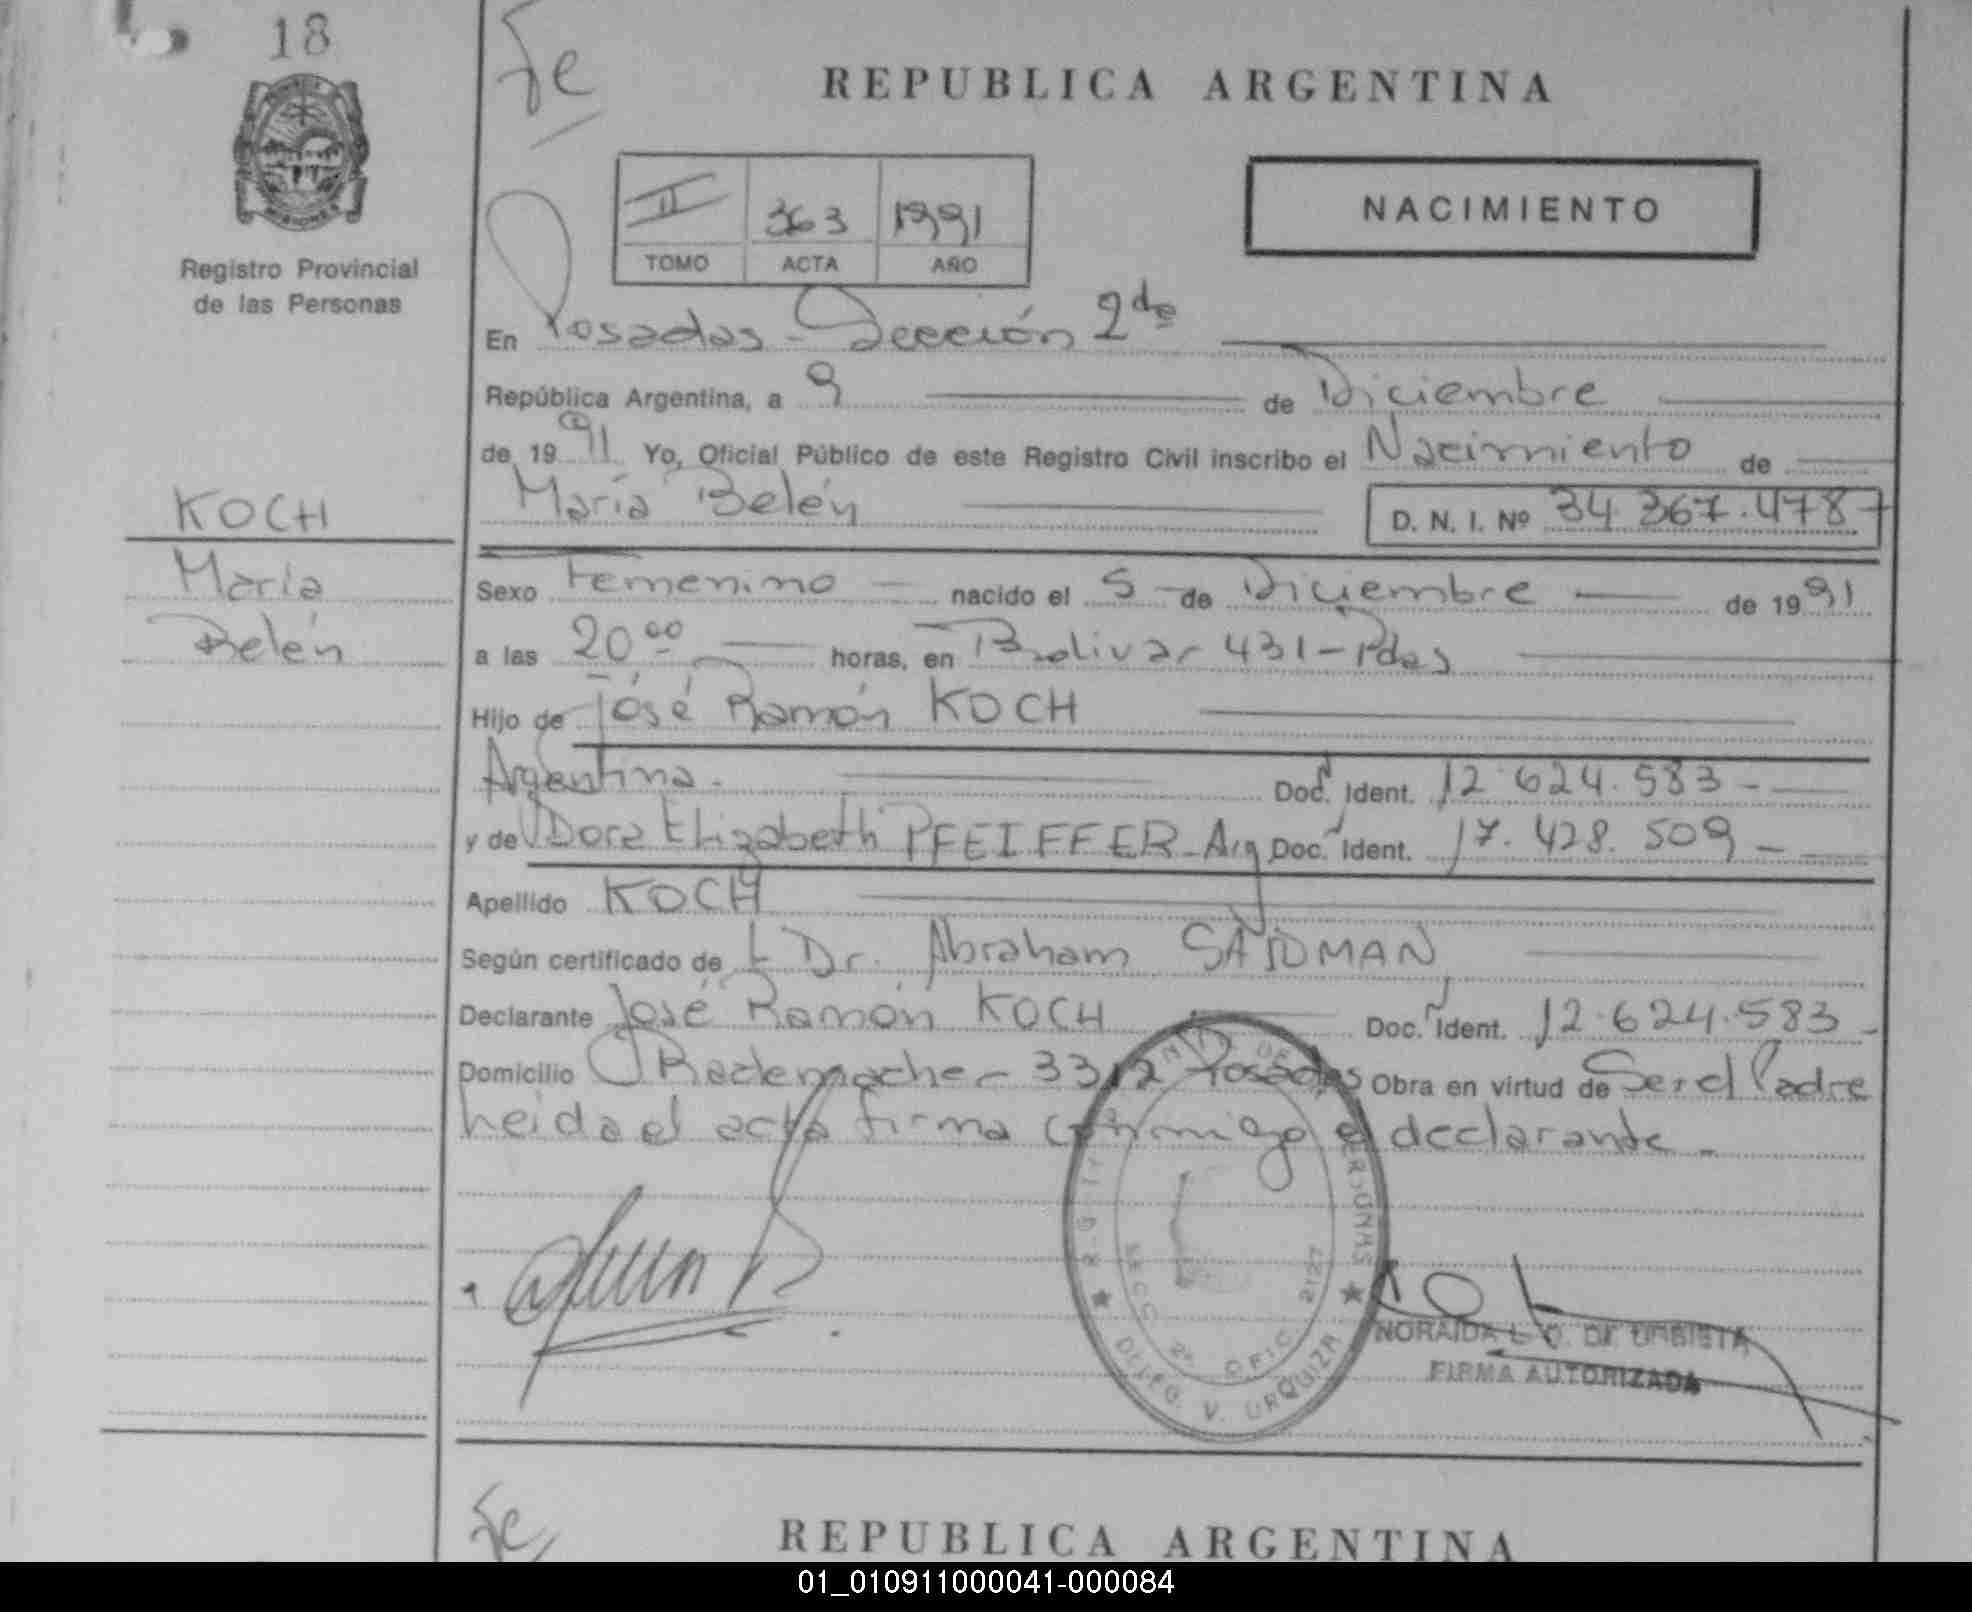 18
Fe
REPUBLICA ARGENTINA
MISIONES
Registro Provincial
de las Personas
II 363 1991
TOMO ACTA AÑO
NACIMIENTO
En Posadas - Sección 2da
República Argentina, a 9 de Diciembre
de 1991 Yo, Oficial Público de este Registro Civil inscribo el Nacimiento de
María Belén D. N. I. Nº 34.367.478
KOCH
María
Belén
Sexo Femenino nacido el 5 de Diciembre de 1991
a las 20 00 horas, en Bolivar 431 - Pdas
Hijo de José Ramón KOCH
Argentina. Doc. Ident. 12.624.583 -
y de Dora Elizabeth PFEIFFER - Arg Doc. Ident. 17.428.509 -
Apellido KOCH
Según certificado de Dr. Abraham
Declarante José Ramón KOCH Doc. Ident. 12.624.583 -
Domicilio Rademacher 3312 Posadas Obra en virtud de Ser el Padre
heida el acta firma conmigo el declarante -
PERSONAS
SECC. 2ª OFIC. 2127
DELEG. V. URQUIZA
NORAIDA L. Q. DE URBIETA
FIRMA AUTORIZADA
Fe
REPUBLICA ARGENTINA
01_010911000041-000084